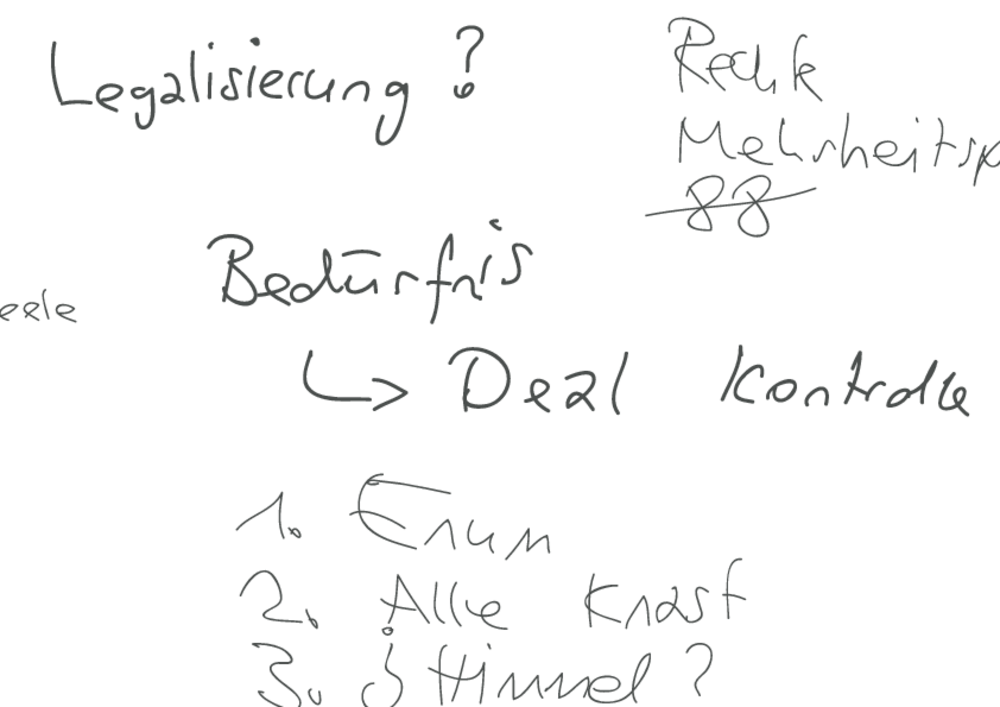 Legalisierung ?
Rechte
Mehrheitsp
88
Bedürfnis
eele
↳ Deal Kontrolle
1. Enum
2. Alle Knast
3. ¿ Himmel ?